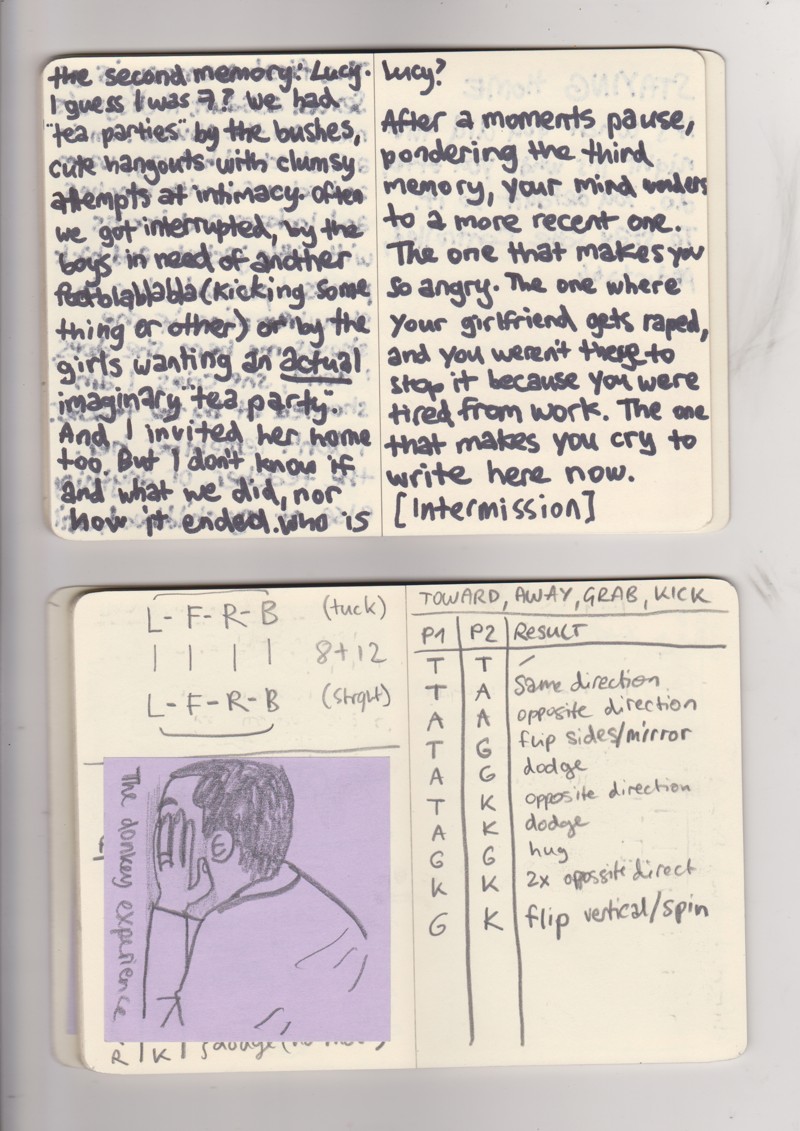 the second memory: Lucy.
I guess I was 7? We had
"tea parties" by the bushes,
cute hangouts with clumsy
attempts at intimacy. Often
we got interrupted, by the
boys in need of another
footblablabla (kicking some
thing or other) or by the
girls wanting an actual
imaginary "tea party".
And I invited her home
too. But I don't know if
and what we did, nor
how it ended. Who is
Lucy?
After a moments pause,
pondering the third
memory, your mind wonders
to a more recent one.
The one that makes you
so angry. The one where
your girlfriend gets raped,
and you weren't there to
stop it because you were
tired from work. The one
that makes you cry to
write here now.
[Intermission]
L- F- R- B (tuck)
| | | | 8+12
L- F- R- B (strght)
The donkey experience
R | K |
TOWARD, AWAY, GRAB, KICK
P1 | P2 | Result
T T /
T A same direction
A A opposite direction
T G flip sides/mirror
A G dodge
T K opposite direction
A K dodge
G G hug
K K 2x opossite direct
G K flip vertical/spin